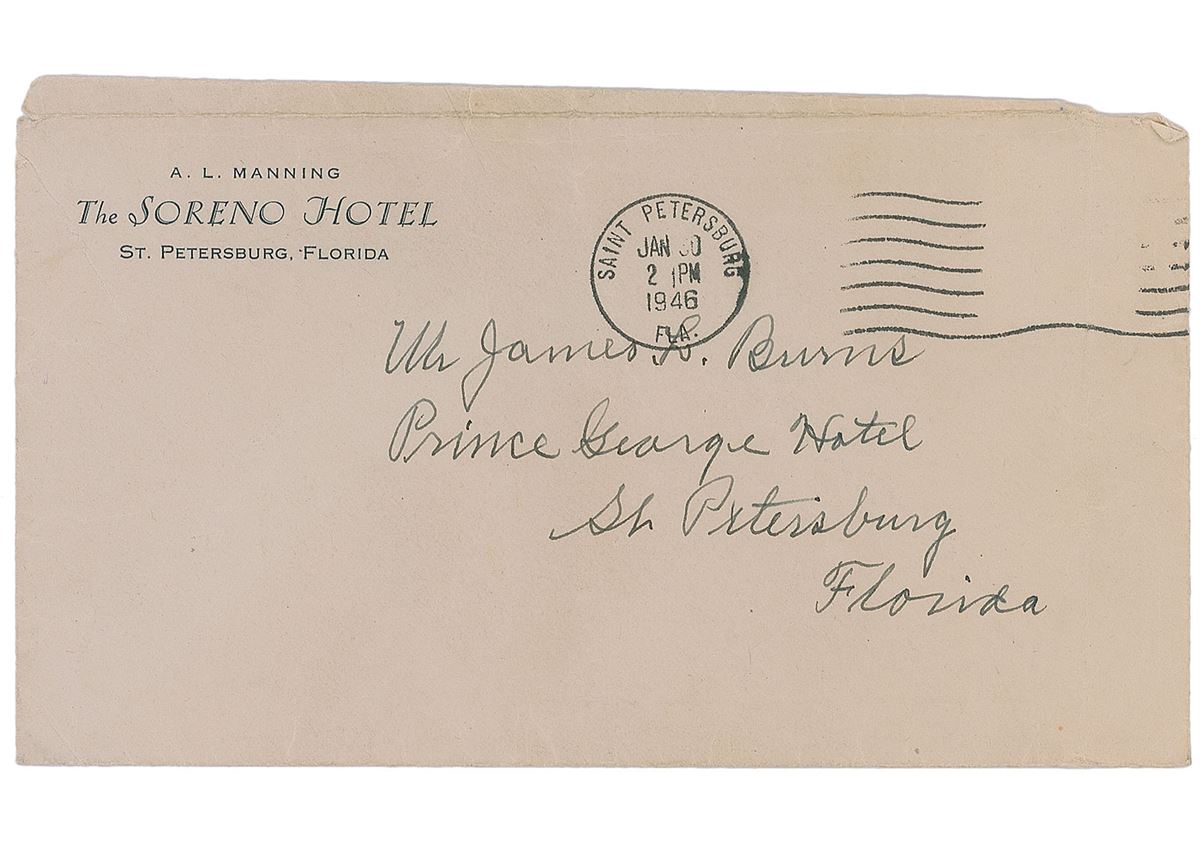 A. L. MANNING
The SORENO HOTEL
ST. PETERSBURG, FLORIDA
SAINT PETERSBURG
JAN 30
2 PM
1946
FLA.
Mr James R. Burns
Prince George Hotel
St Petersburg
Florida